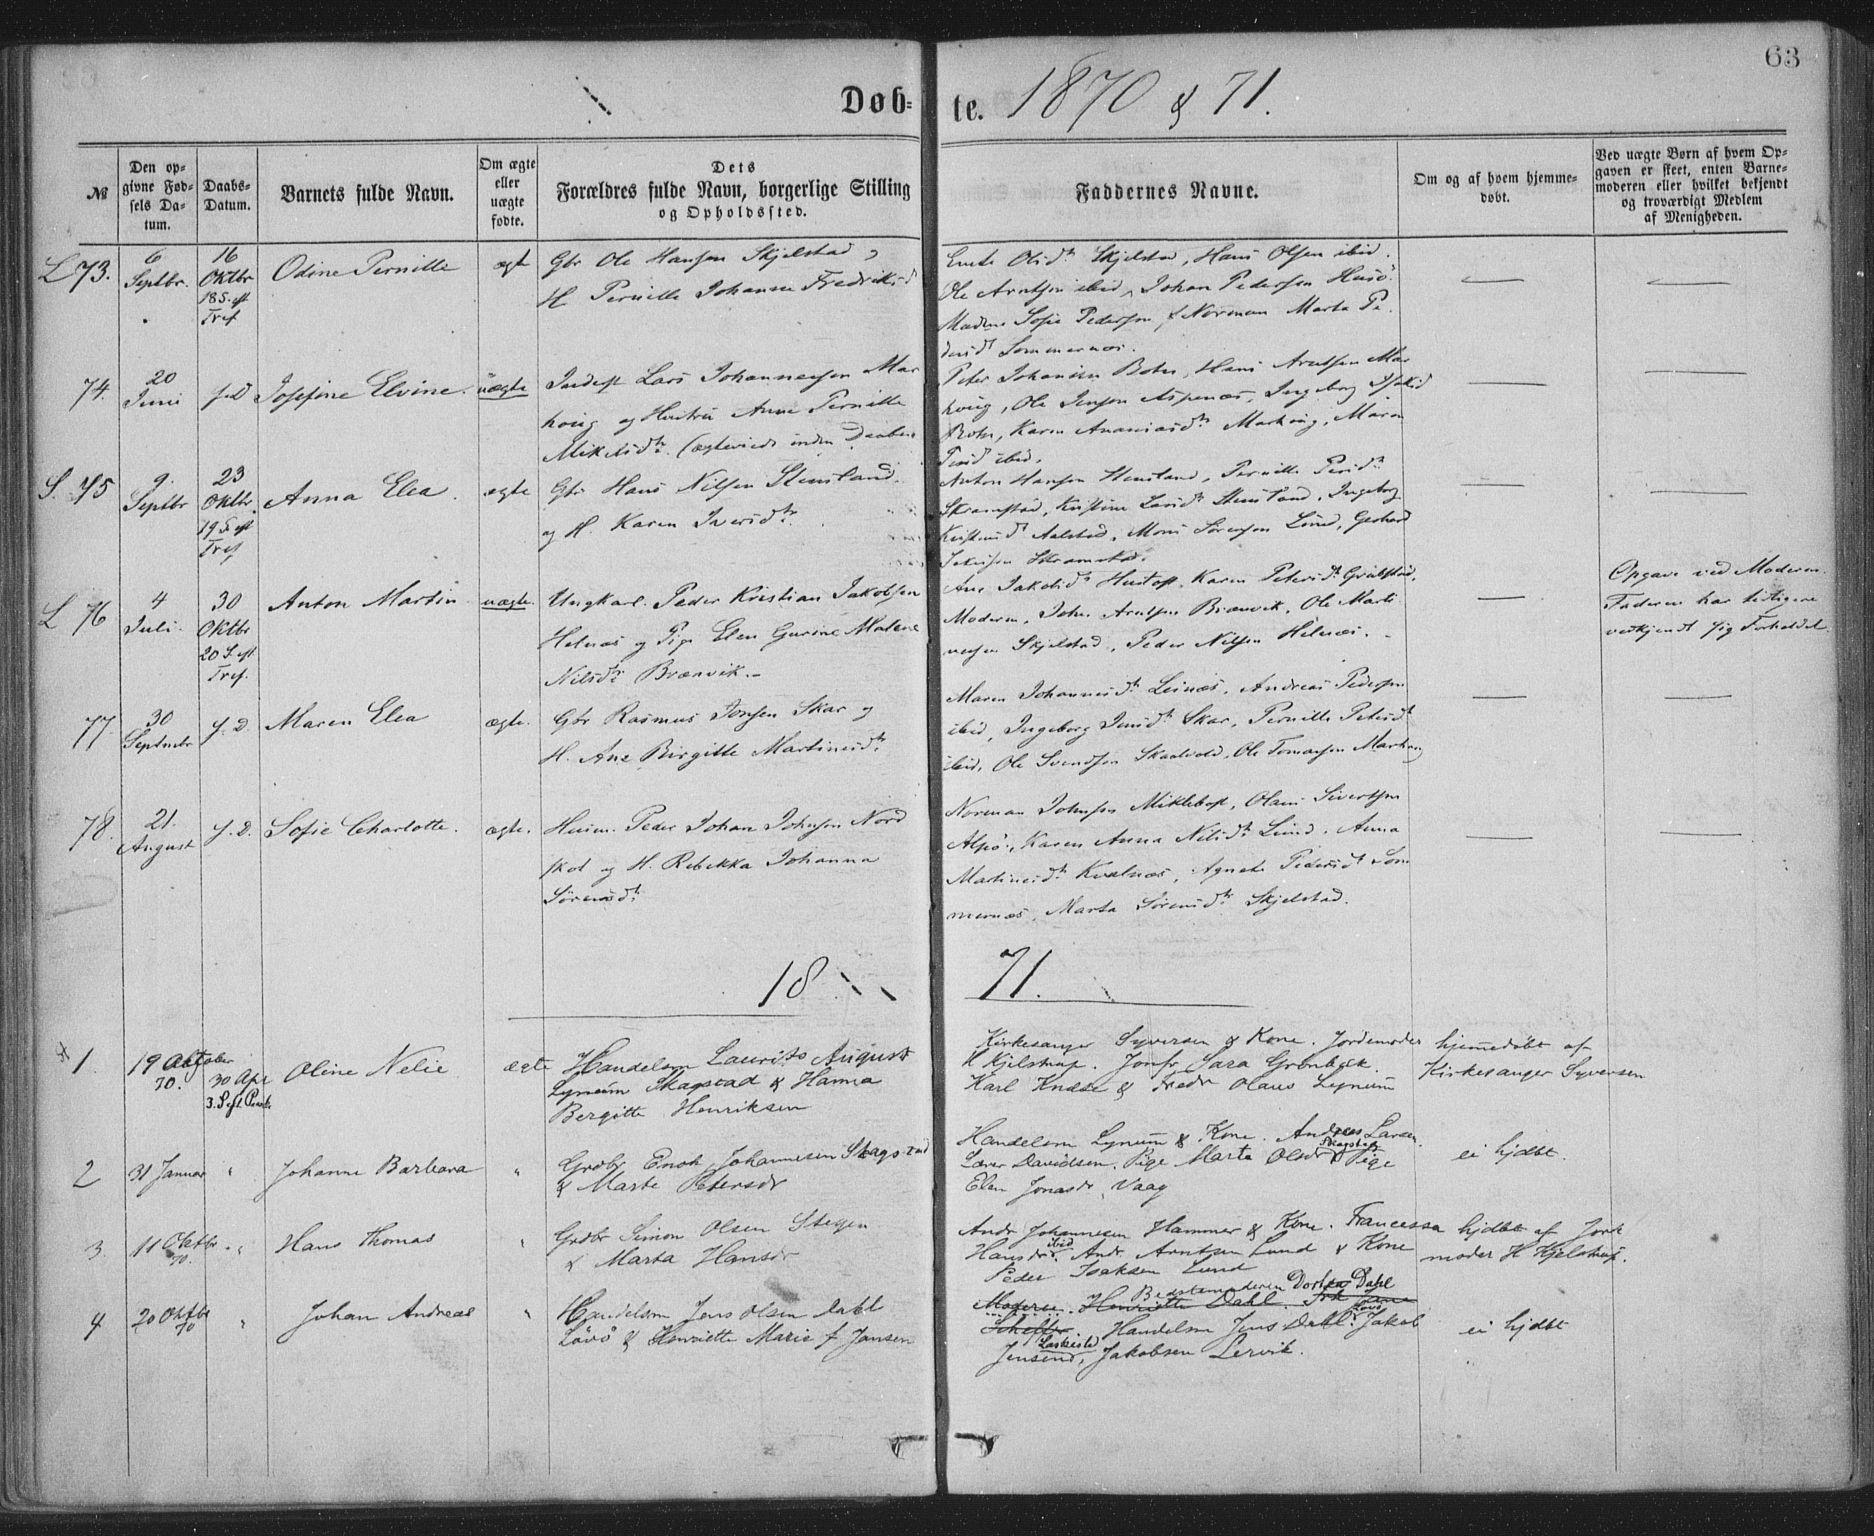 63
Døb- te. 1870 & 71.
№
Den op-
givne Fød-
sels Da-
tum.
Daabs-
Datum.
Barnets fulde Navn.
Om ægte
eller
uægte
fødte.
Dets
Forældres fulde Navn, borgerlige Stilling
og Opholdssted.
Faddernes Navne.
Om og af hvem hjemme-
døbt.
Ved uægte Børn af hvem Op-
gaven er skeet, enten Barne-
moderen eller hvilket bekjendt
og troværdigt Medlem
af Menigheden.
L 73.
6
Septbr.
16
Oktbr
18 S. eft
Tref
Odine Pernille
ægt
Gbr Ole Hansen Skjelstad,
H Pernille Johanne Fredriksd
Ole Arntsen ibid, Johan Pedersen Husö
Sofie Pedersen, Norman Marta Pe
dersdr Sommernæs.
74.
20
Juni
s. D
Josefine Elvine.
uægte
Inderst Lars Johannesen Mar
houg og Hustru Anne Pernille
Mikelsdr. (ægteviede inden Daaben
Peter Johansen Botn, Hans Arntsen Mar
houg, Ole Jensen Aspenæs, Ingeborg
Botn, Karen Ananiasdr Marhoug, Maren
ibid.
S. 75
9.
Septbr
23
Oktbr.
19 S. eft
Tref
Anna Elea.
ægte
Gbr Hans Nilsen Stensland.
og H. Karen Iversdr.
Anton Hansen Stensland, Pernille
Skramstad, Kristine Larsdr Stensland, Ingeborg
Aalstad, Mons Sörensen Lund, Gerhard
Skramstad.
L 76
4
Juli.
30
Oktbr
20 S. eft
Tref.
Anton Martin
uægte.
Ungkarl. Peder Kristian Jakobsen
Helnæs og Pige Elen Gurine Malene
Nilsdr Brænvik.
Ane Jakobsdr Hustoft, Karen Petersdr
Moderen, Johs. Arntsen Brænvik, Ole Marti
nesen Skjelstad, Peder Nilsen Helnæs.
Opgave ved Moderen.
Faderen har tidligere
vedkjendt sig Forholdet.
77.
30
Septmbr
s. D.
Maren Elea
ægte.
Gbr Rasmus Jensen Skar og
H. Ane Birgitte Martinesdr.
Maren Johannesdr Leinæs, Andreas Pedersen
ibid, Ingeborg Jensdr Skar, Pernille Petersdr
ibid, Ole Svendsen Skaalvold, Ole Tomassen Marhoug
78.
21.
August
s. D.
Sofie Charlotte.
ægte.
Husm. Peder Johan Johnsen Nord
skot og H. Rebekka Johanna
Sörensdr.
Norman Johnsen Miklebost, Olaus Sivertsen
Alpö, Karen Anna Nilsdr Lund, Anna
Martinesdr Kvalnæs, Agnete Pedersdr Som
mernæs, Marta Sörensdr Skjelstad.
18 71.
1.
19 Oktober
70.
30 Apr
3. S eft Paaske
Oline Nelie
ægte
Handelsm Laurits August
Lyneum Skagstad & Hanna
Bergitte Henriksen
Kirkesanger Syversen & Kone. Jordemoder
H Kjelstrup. Jomfr Sara Grönbeck.
Karl Knase & Fredr Olaus Lyneum
hjemmedøbt af
Kirkesanger Syversen
2
31 Januar
"
Johanne Barbara
"
Grdbr Enok Johannesen Skagstad
& Marte Petersdr
Handelsm Lyneum & Kone. Andreas Larsen.
Lærer Davidsen. Pige Marte Olsdr Skagstad & Pige
Elen Jonasdr Vaag
ei hjdbt.
3.
11 Oktbr
70.
"
Hans Thomas
"
Grdbr Simon Olsen Stegen
& Marta Hansdr
Andr Johannesen Hammer & Kone. Francessa
Hansdr ibid. Andr Arntsen Lund & Kone
Peder Isaksen Lund
hjdbt af Jord
moder H Kjelstrup.
4
20 Oktbr
70
"
Johan Andreas
"
Handelsm Jens Olsen Dahl
Lövö & Henriette Marie f Jansen
Bedstemoderen Dortea Dahl
Moderen Henriette Dahl.
Handelsm Jens Dahl Lövö. Jakob
Jensen, Jakobsen Lervik.
ei hjdbt